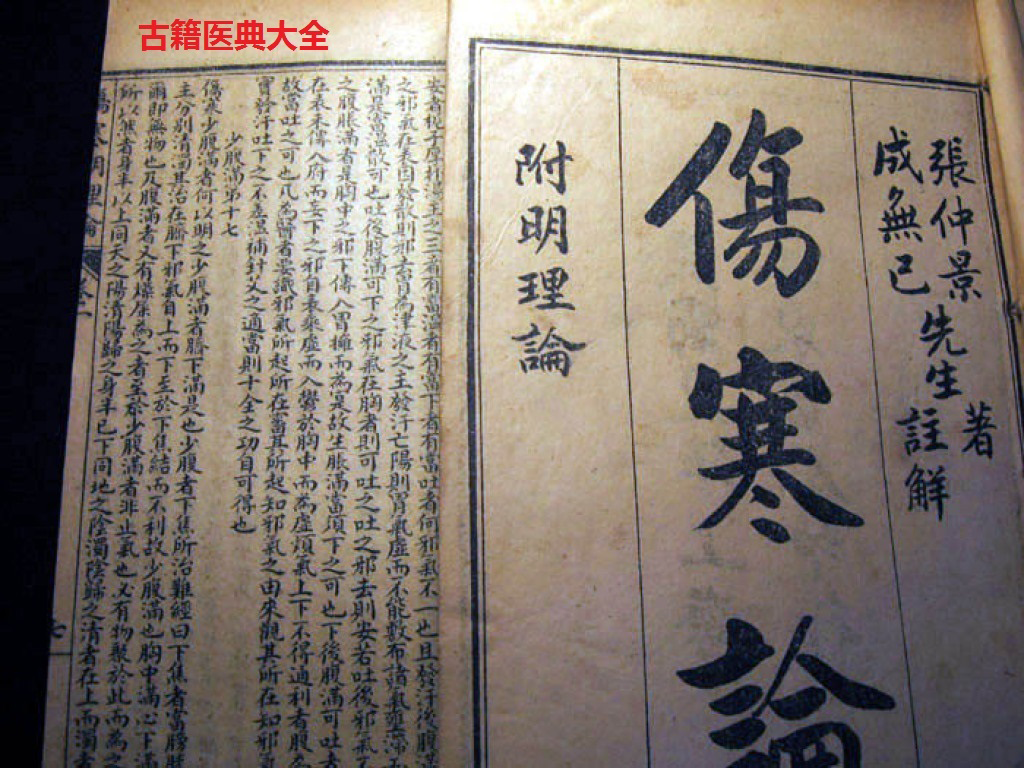 古籍医典大全
張仲景先生著
成無己註解
傷寒論
附明理論
安者梔子厚朴湯主之三者有當溫者有當下者有當吐者何邪氣不一也且發汗後腹滿
之邪氣在表因發散則邪去胃為津液之主發汗亡陽則胃氣虛而不能敷布諸氣壅滯而
滿是當溫散可也吐後腹滿可下之邪氣在胸者則可吐之吐之邪去則安若吐後邪氣不
之腹脹滿者是胸中之邪下傳入胃擁而為實故生脹滿當須下之可也下後腹滿可吐者
在表未傳入府而妄下之邪自表乘虛而入鬱於胸中而為虛煩氣上下不得通利者腹為
故當吐之可也凡為醫者要識邪氣所起所在審其所起知邪氣之由來觀其所在如邪
實發汗吐下之不差溫補針艾之適當則十全之功自可得也
少腹滿第十七
傷寒少腹滿者何以明之少腹滿者臍下滿是也少腹者下焦所治難經曰下焦者當膀
主分別清濁其治在臍下邪氣自上而下至於下焦結而不利故少腹滿也胸中滿心下滿
爾即無物也及腹滿者又有燥屎為之者至於少腹滿者非止氣也必有物聚於此而為之
所以然者身半以上同天之陽清陽歸之身半已下同地之陰濁陰歸之清者在上而濁者
傷寒明理論
卷二
七